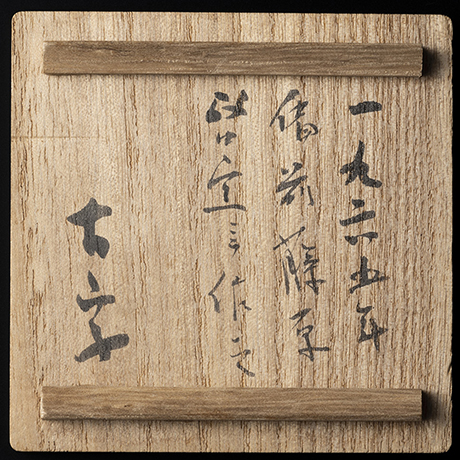 一九六五年
備前藤原
啓 作之
古